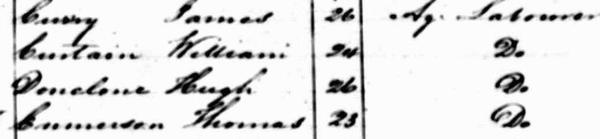 Curry James 26 Ag. Labourer
Curtain William 24 Do
Donelone Hugh 26 Do
Emmerson Thomas 23 Do